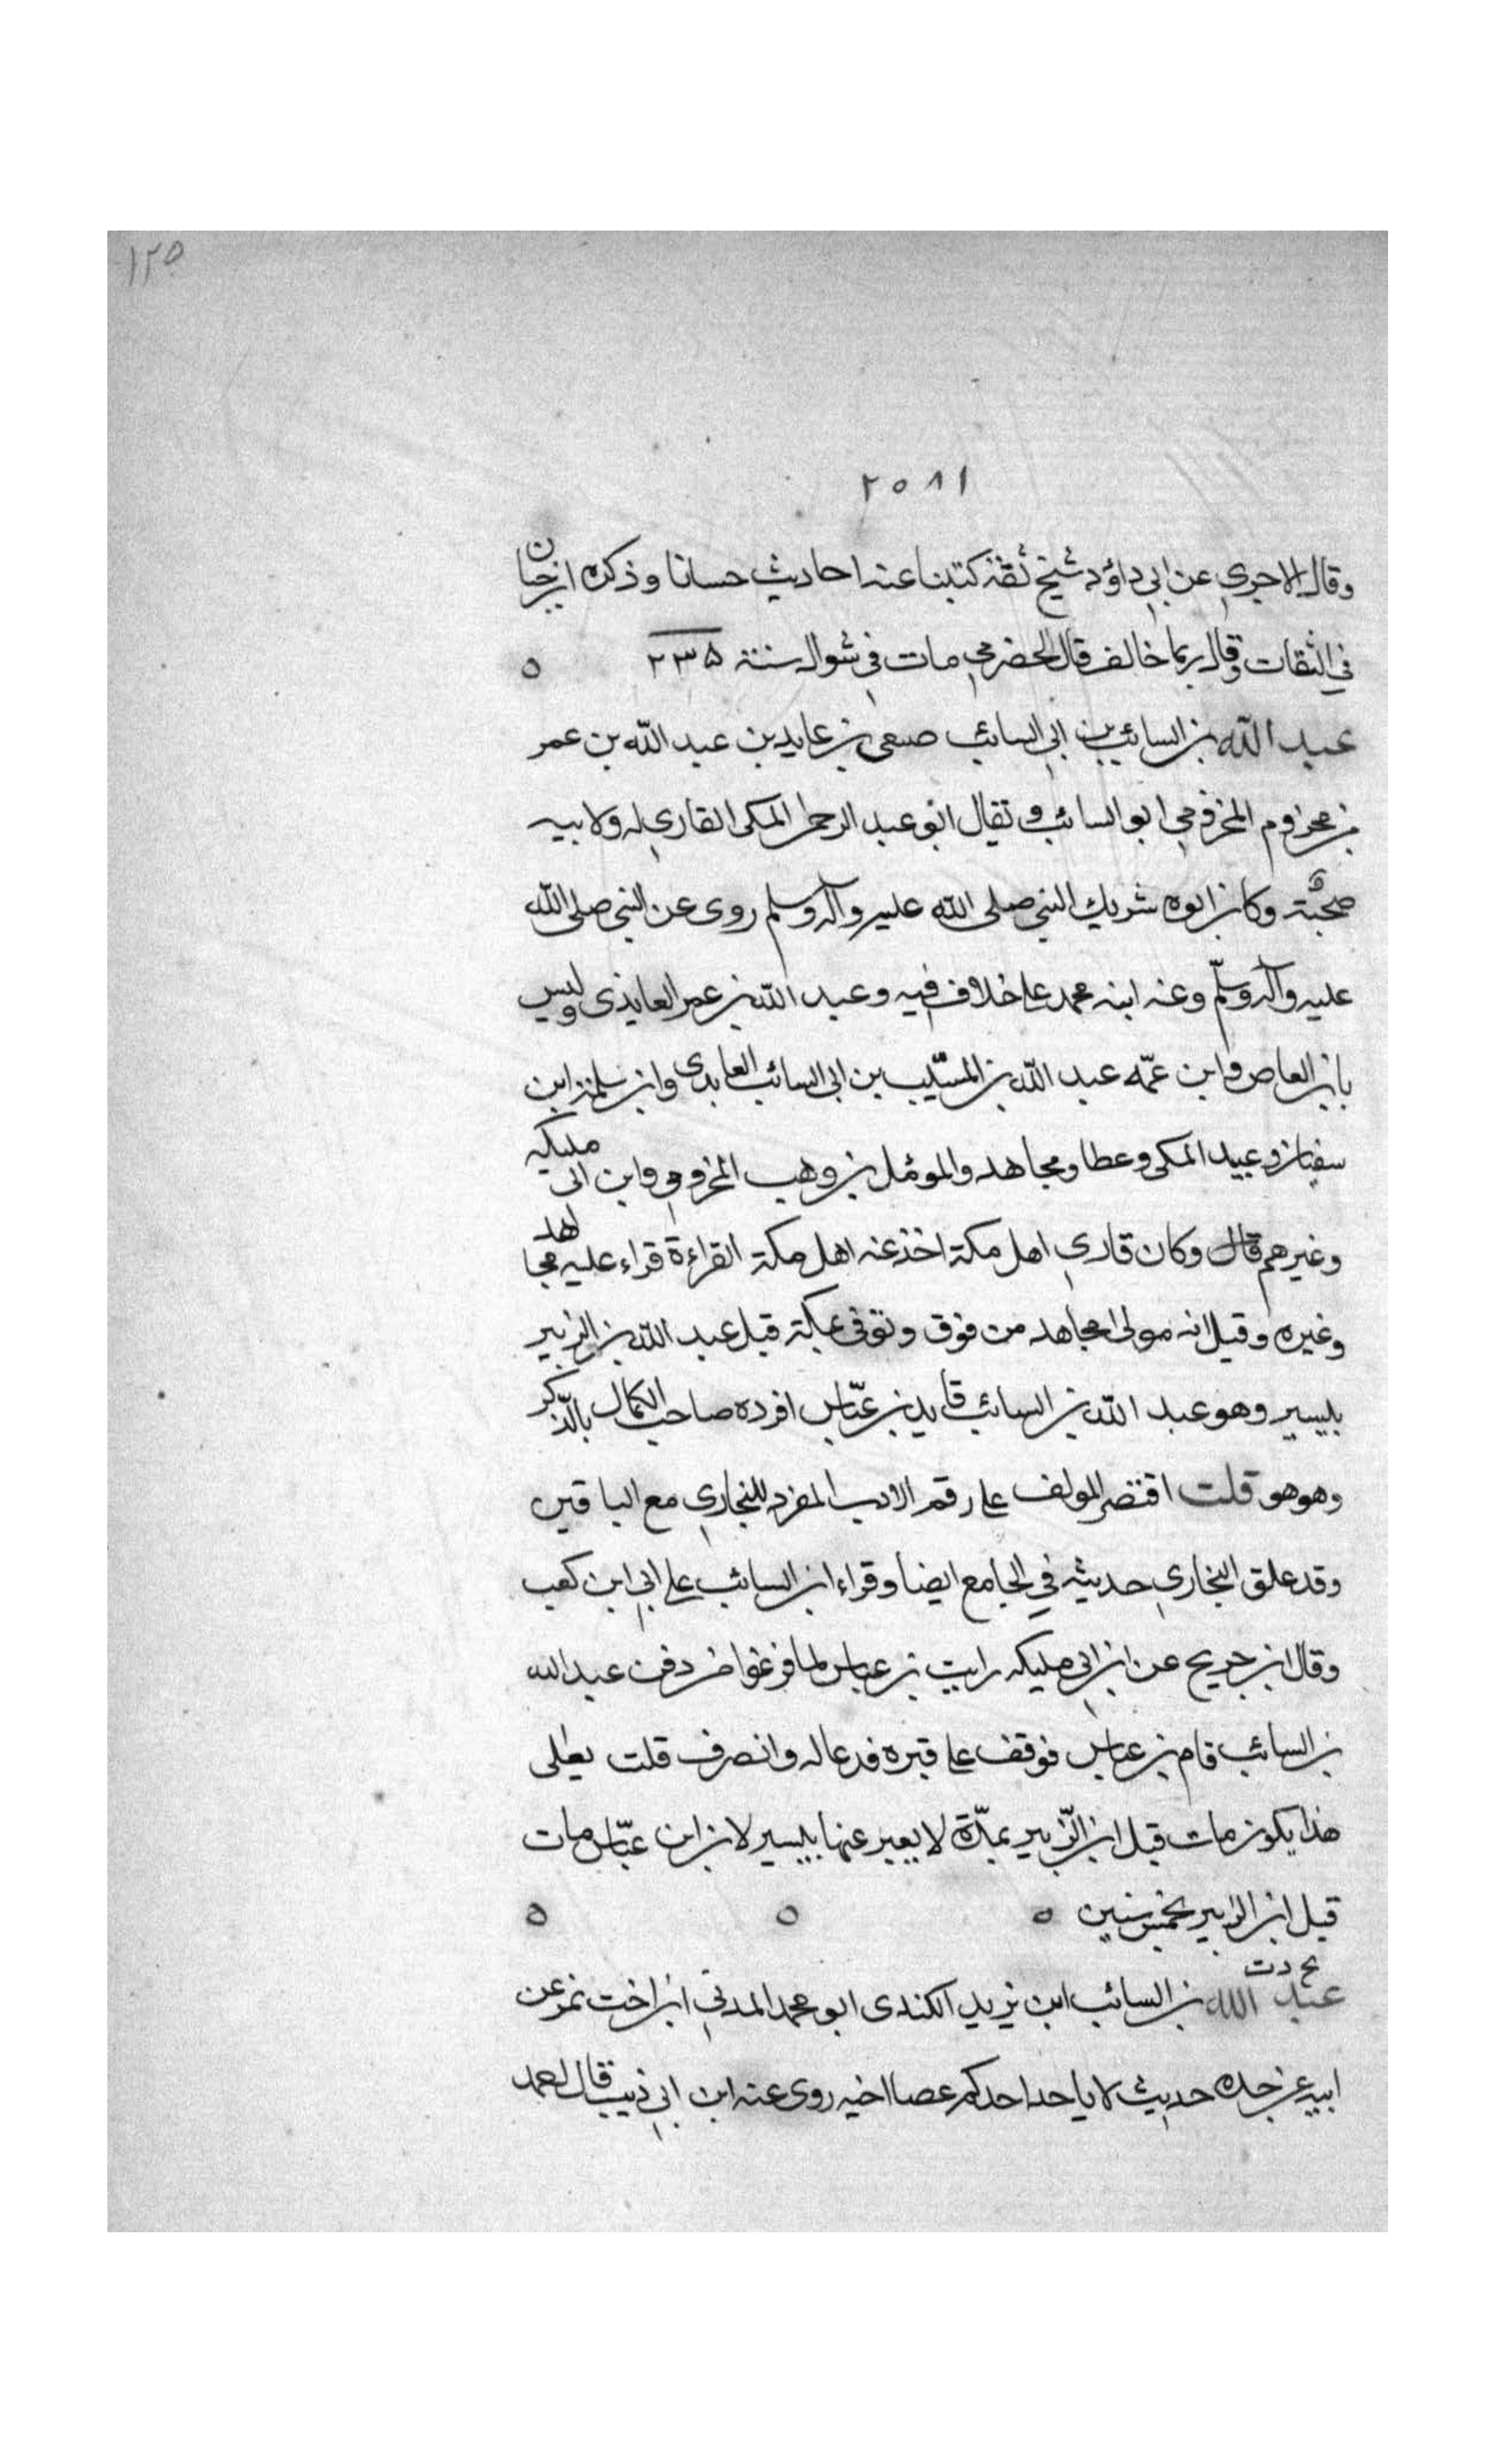 ١٢٥
٢٥٨١
وقال الاجري عن ابي داؤد شيخ ثقة كتبنا عنه احاديث حسانا وذكره ابن حبان
في الثقات وقال ربما خالف قال الحضرمي مات في شوال سنة ٢٣٥ ٥
عبد الله بن السائب بن ابي السائب صيفي بن عايد بن عبد الله بن عمر
بن مخزوم المخزومي ابو السائب ويقال ابو عبد الرحمن المكي القاري له ولابيه
صحبة وكان ابوه شريك النبي صلى الله عليه وآله وسلم روى عن النبي صلى الله
عليه وآله وسلم وعنه ابنه محمد على خلاف فيه وعبد الله بن عمر العايذى وليس
بابن العاص وابن عمّه عبد الله بن المسيّب بن ابى السائب العابدى وابن سلمة ابن
سفيان وعبيد المكى وعطا ومجاهد والموئل بن وهب المخزومي وابن ابى مليكه
وغيرهم قال وكان قاري اهل مكة اخذ عنه اهل مكة القراءة قراء عليه مجاهد
وغيره وقيل انه مولى مجاهد من فوق وتوفى بمكة قبل عبد الله بن الزبير
بيسير وهو عبد الله بن السائب قايد بن عبّاس افرده صاحب الكمال بالذّكر
وهو هو قلت اقتصر المولف على رقم الادب المفرد للبخاري مع الباقين
وقد علق البخاري حديثه في الجامع ايضا وقراء ابن السائب على ابي ابن كعب
وقال ابن جريج عن ابن ابي مليكه رايت بن عباس لما فرغوا من دفن عبد الله
بن السائب قام بن عباس فوقف على قبره فدعا له وانصرف قلت يعلى
هذا يكون مات قبل ابن الزّبير بمدّة لا يعبر عنها بيسير لان ابن عبّاس مات
قبل ابن الزبير بخمس سنين ٥ ٥ ٥
بخ دت
عبد الله بن السائب ابن يزيد الكندى ابو محمد المدني ابن اخت نمر عن
ابيه عن جده حديث لا ياخد احدكم عصا اخيه روى عنه ابن ابي ذيب قال احمد